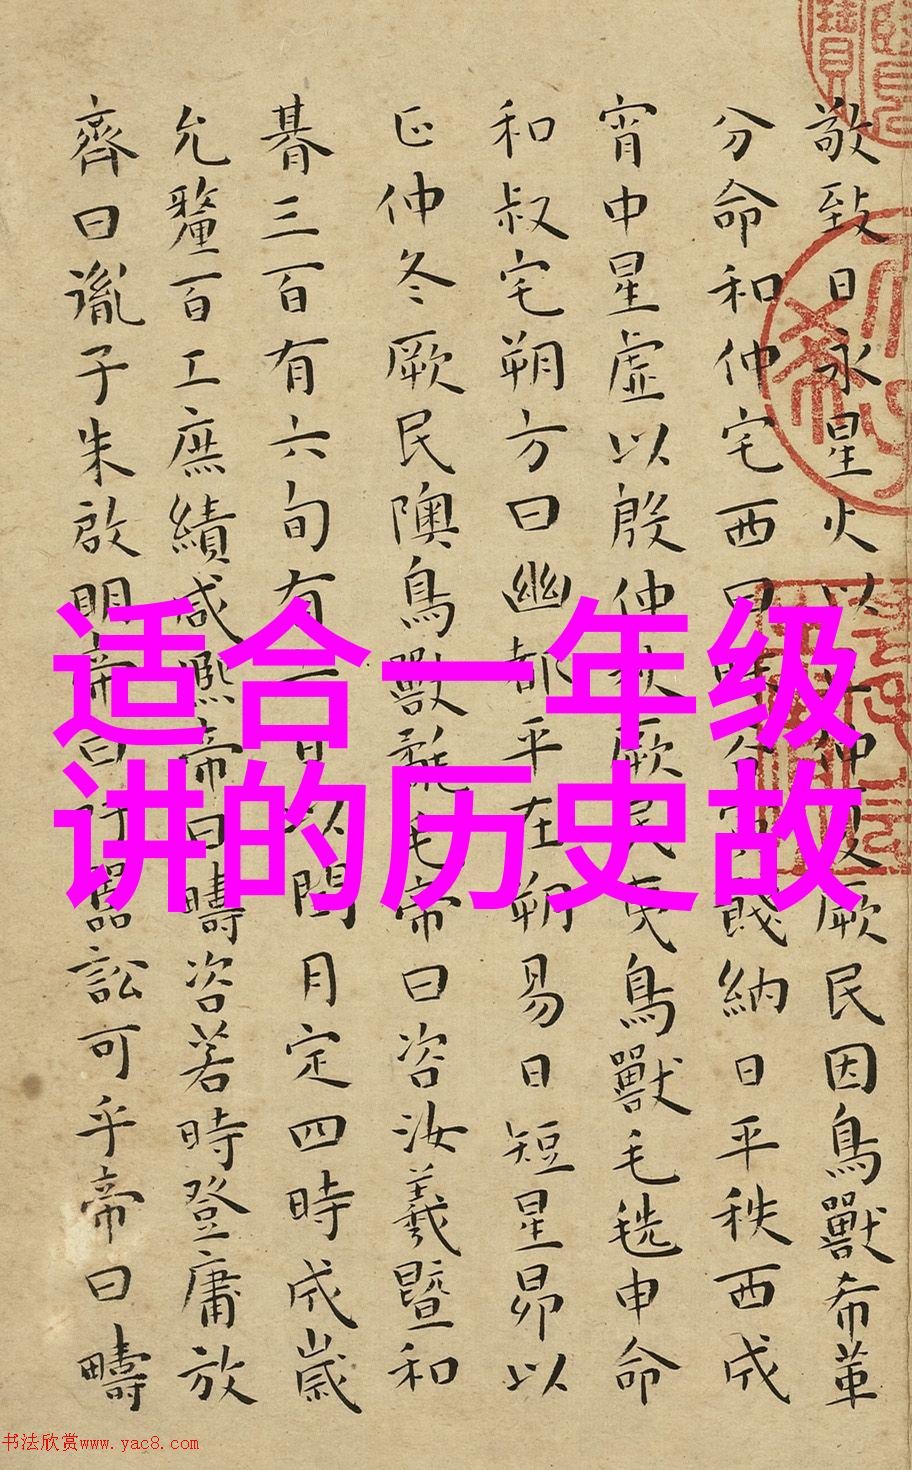 适合一年级
讲的历史故
敬致日永星火以正仲夏厥民因鳥獸希革
分命和仲宅西曰昧谷寅餞納日平秩西成
宵中星虛以殷仲秋厥民夷鳥獸毛毨申命
和叔宅朔方曰幽都平在朔易日短星昴以
正仲冬厥民隩鳥獸氄毛帝曰咨汝羲暨和
朞三百有六旬有六日以閏月定四時成歲
允釐百工庶績咸熙帝曰疇咨若時登庸放
齊曰胤子朱啟明帝曰吁嚚訟可乎帝曰疇
书法欣赏www.yac8.com